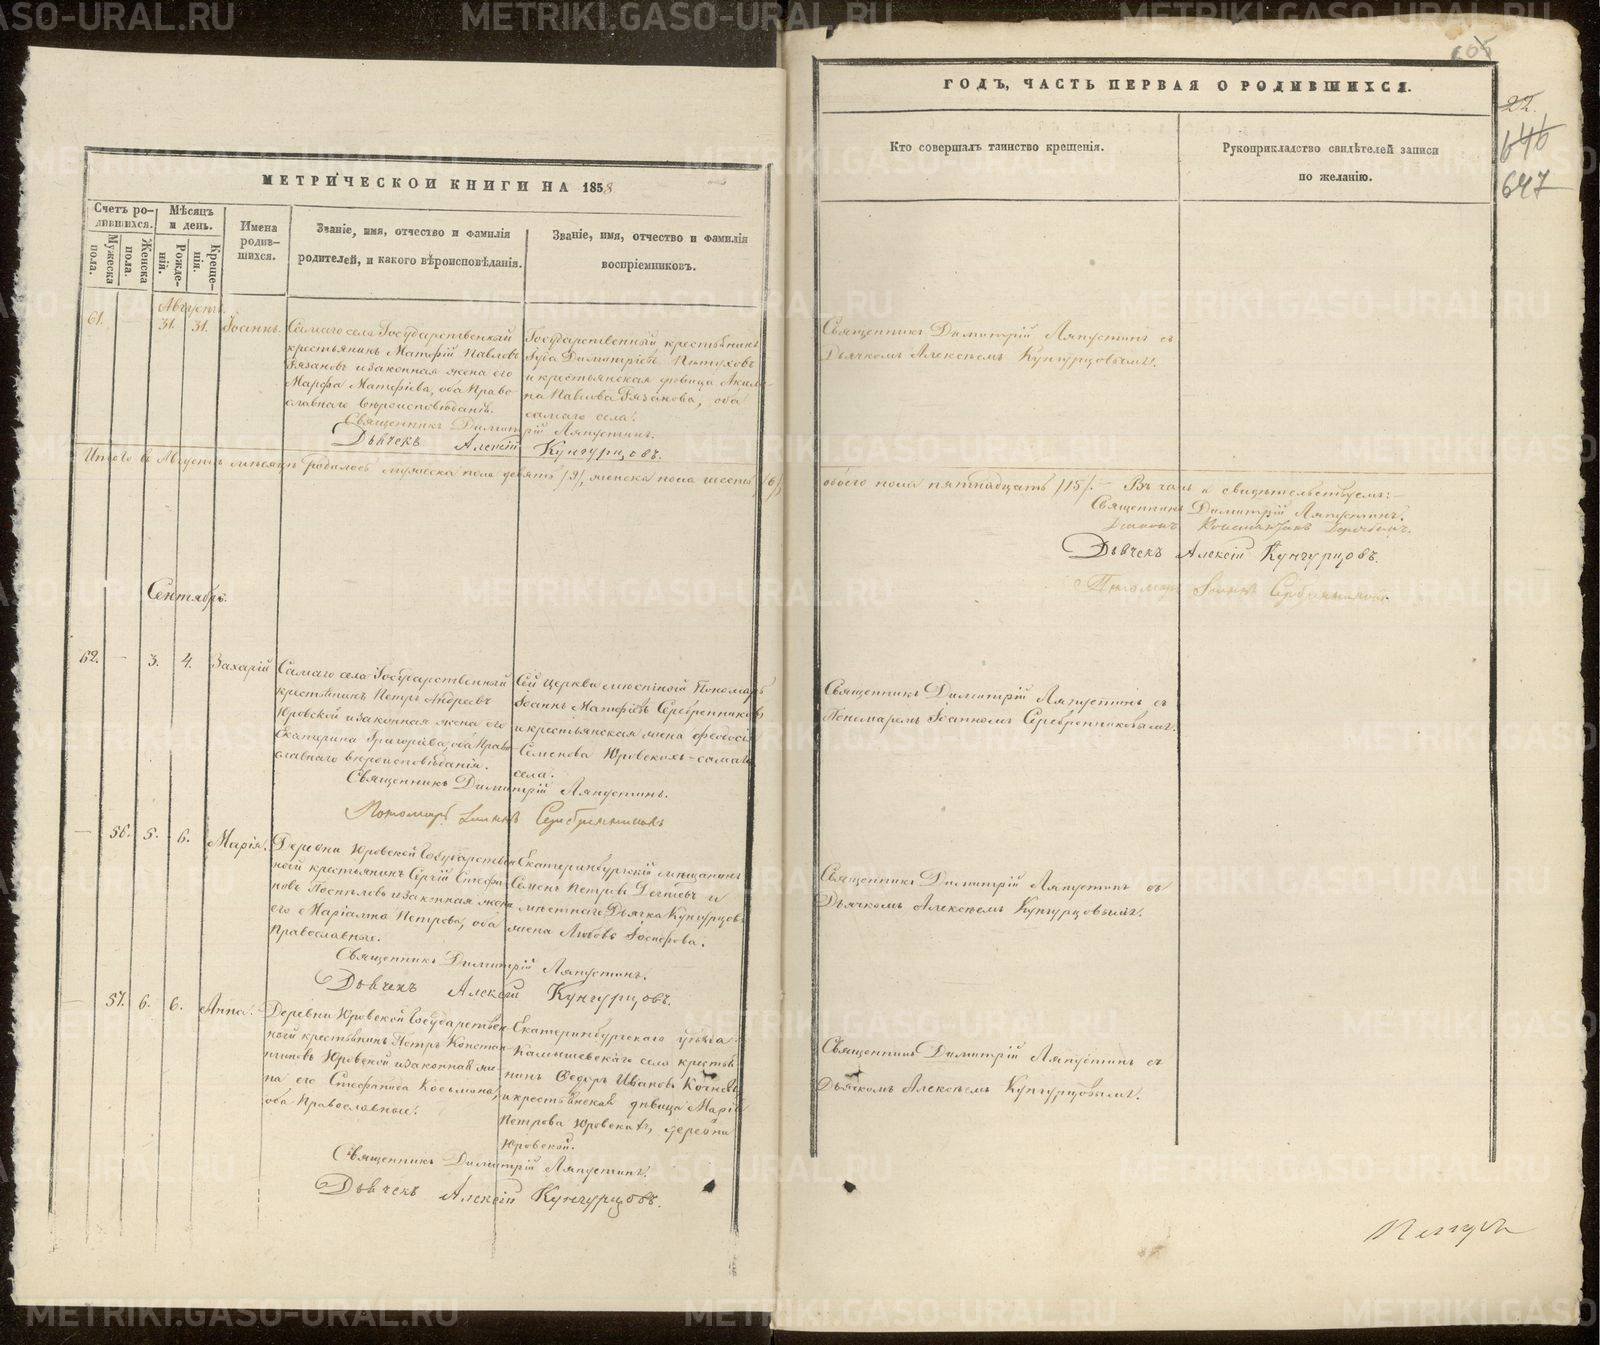 МЕТРИЧЕСКОЙ КНИГИ НА 1858
Счетъ ро-
дившихся.
Мужеска
пола.
Женска
пола.
Мѣсяцъ
и день.
Рожде-
нія.
Креще-
нія.
Имена
родив-
шихся.
Званіе, имя, отчество и фамилія
родителей, и какого вѣроисповѣданія.
Званіе, имя, отчество и фамилія
воспріемниковъ.
Августъ.
61.
31.
31.
Іоаннъ.
Самаго села Государственный
крестьянинъ Матфій Павловъ
Рязановъ и законная жена его
Марфа Матфіева, оба Право-
славнаго вѣроисповѣданія.
Государственный крестьянинъ
Димитріевъ Пѣтуховъ
и крестьянская дѣвица Акили-
на Павлова Рязанова, оба
самаго села.
Священникъ Димитрій Ляпустинъ.
Дьячекъ Алексій Кунгурцовъ.
Итого въ Августѣ мѣсяцѣ родилось мужеска пола девять /9/, женска пола шесть /6/,
Сентябрь.
62.
—
3.
4.
Захарій
Самаго села Государственный
крестьянинъ Петръ Андреевъ
Юровской и законная жена его
Екатерина Григорьева, оба Право-
славнаго вѣроисповѣданія.
Сей Церкви мѣстный Пономарь
Іоаннъ Матфіевъ Серебренниковъ
и крестьянская жена Феодосія
Семенова Юровскихъ - самаго
села.
Священникъ Димитрій Ляпустинъ.
Пономарь Іоаннъ Серебренниковъ
—
56.
5.
6.
Марія.
Деревни Юровской Государствен-
ной крестьянинъ Сергій Стефа-
новъ Поспѣловъ и законная жена
его Маріамна Петрова, оба
Православные.
Екатеринбургскій мѣщанинъ
Семенъ Петровъ и
мѣстнаго Дьячка Кунгурцова
жена Любовь Іосифова.
Священникъ Димитрій Ляпустинъ.
Дьячекъ Алексій Кунгурцовъ.
—
57.
6.
6.
Анна.
Деревни Юровской Государствен-
ной крестьянинъ Петръ Констан-
тиновъ Юровской и законная же-
на его Стефанида Козмина,
оба Православные.
Екатеринбургскаго уѣзда
Камышевскаго села крестья-
нинъ Ѳедоръ Ивановъ Кочневъ
и крестьянская дѣвица Марія
Петрова Юровскихъ, деревни
Юровской.
Священникъ Димитрій Ляпустинъ.
Дьячекъ Алексій Кунгурцовъ.
65
ГОДЪ, ЧАСТЬ ПЕРВАЯ О РОДИВШИХСЯ.
22.
646
647
Кто совершалъ таинство крещенія.
Рукоприкладство свидѣтелей записи
по желанію.
Священникъ Димитрій Ляпустинъ съ
Дьячкомъ Алексѣемъ Кунгурцовымъ.
обоего пола пятнадцать /15/. — Въ чемъ и свидѣтельствуемъ: —
Священникъ Димитрій Ляпустинъ.
Діаконъ
Дьячекъ Алексій Кунгурцовъ.
Пономарь Іоаннъ Серебренниковъ
Священникъ Димитрій Ляпустинъ съ
Пономаремъ Іоанномъ Серебренниковымъ.
Священникъ Димитрій Ляпустинъ съ
Дьячкомъ Алексѣемъ Кунгурцовымъ.
Священникъ Димитрій Ляпустинъ съ
Дьячкомъ Алексѣемъ Кунгурцовымъ.
METRIKI.GASO-URAL.RU